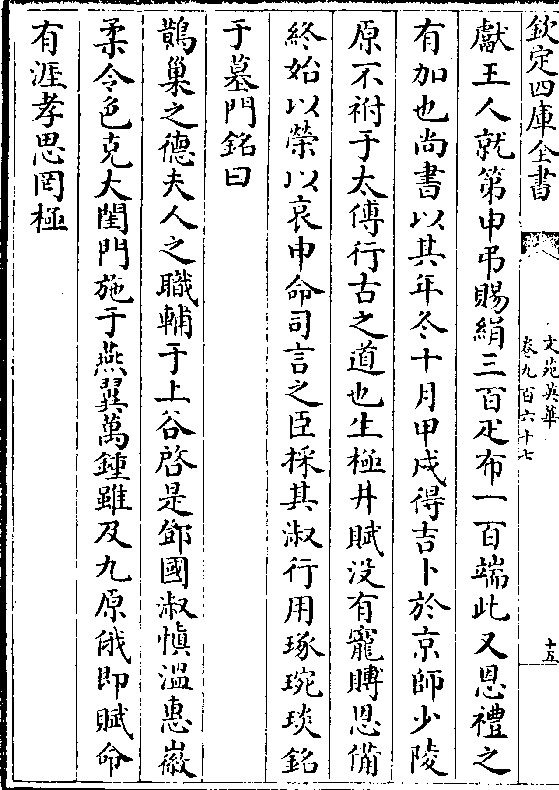 欽定四庫全書
文苑英華
卷九百六十七
十五
獻王人就第申弔賜絹三百疋布一百端此又恩禮之
有加也尚書以其年冬十月甲戌得吉卜於京師少陵
原不祔于太傅行古之道也生極井賦没有寵賻恩備
終始以榮以哀申命司言之臣採其淑行用琢琬琰銘
于墓門銘曰
鵲巢之德夫人之職輔于上谷啓是鄧國淑慎温惠徽
柔令色克大閨門施于燕翼萬鍾雖及九原俄即賦命
有涯孝思罔極